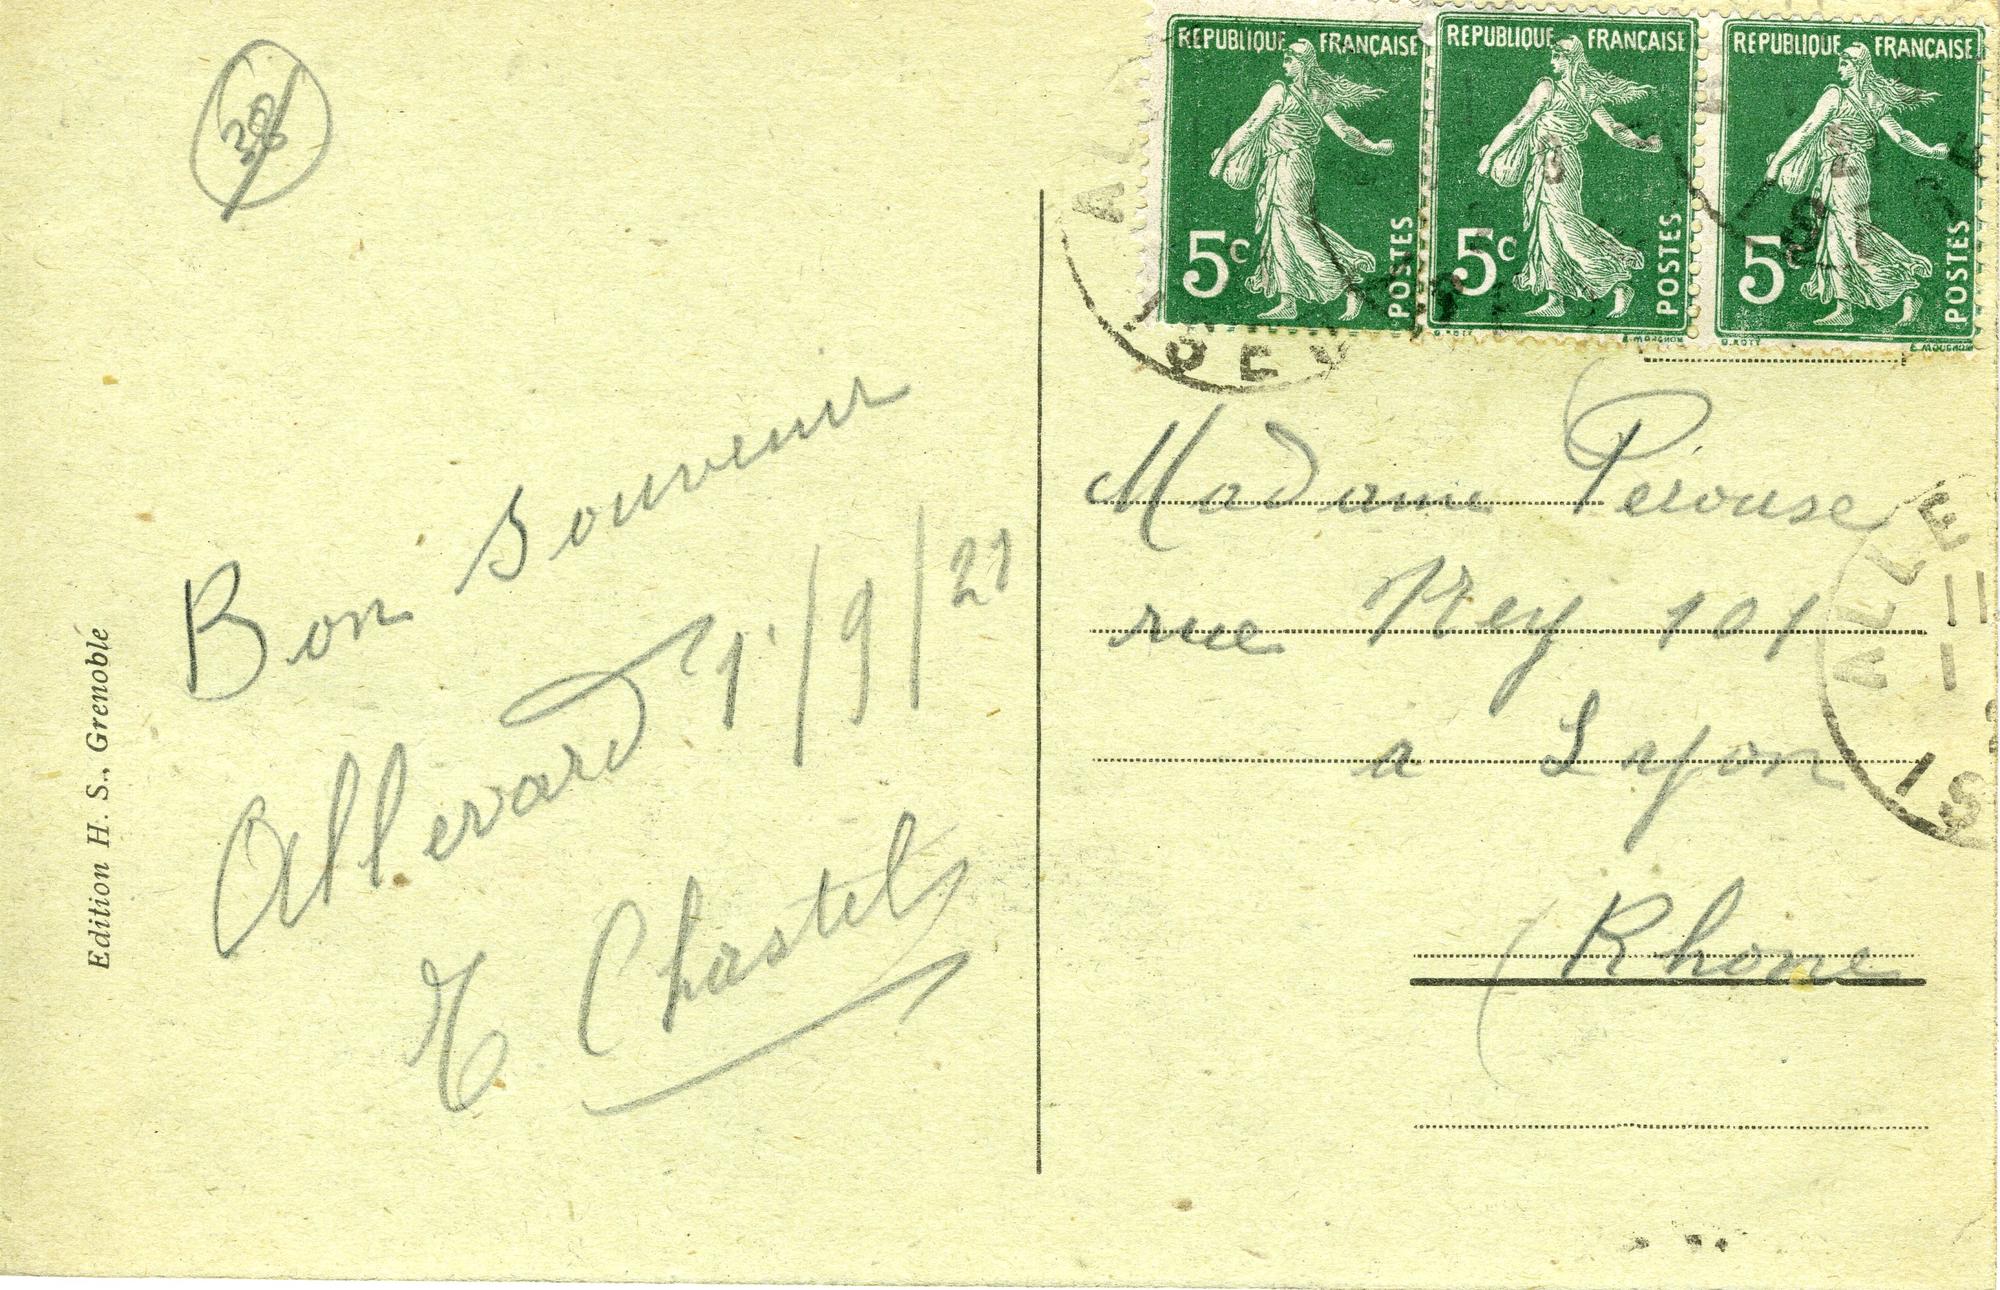 Bon Souvenir
Allevard 1/9/21
Chastel
Edition H. S., Grenoble
REPUBLIQUE FRANÇAISE
5c
POSTES
REPUBLIQUE FRANÇAISE
5c
POSTES
REPUBLIQUE FRANÇAISE
5c
POSTES
Madame Pérouse
rue Ney 101
a Lyon
Rhone